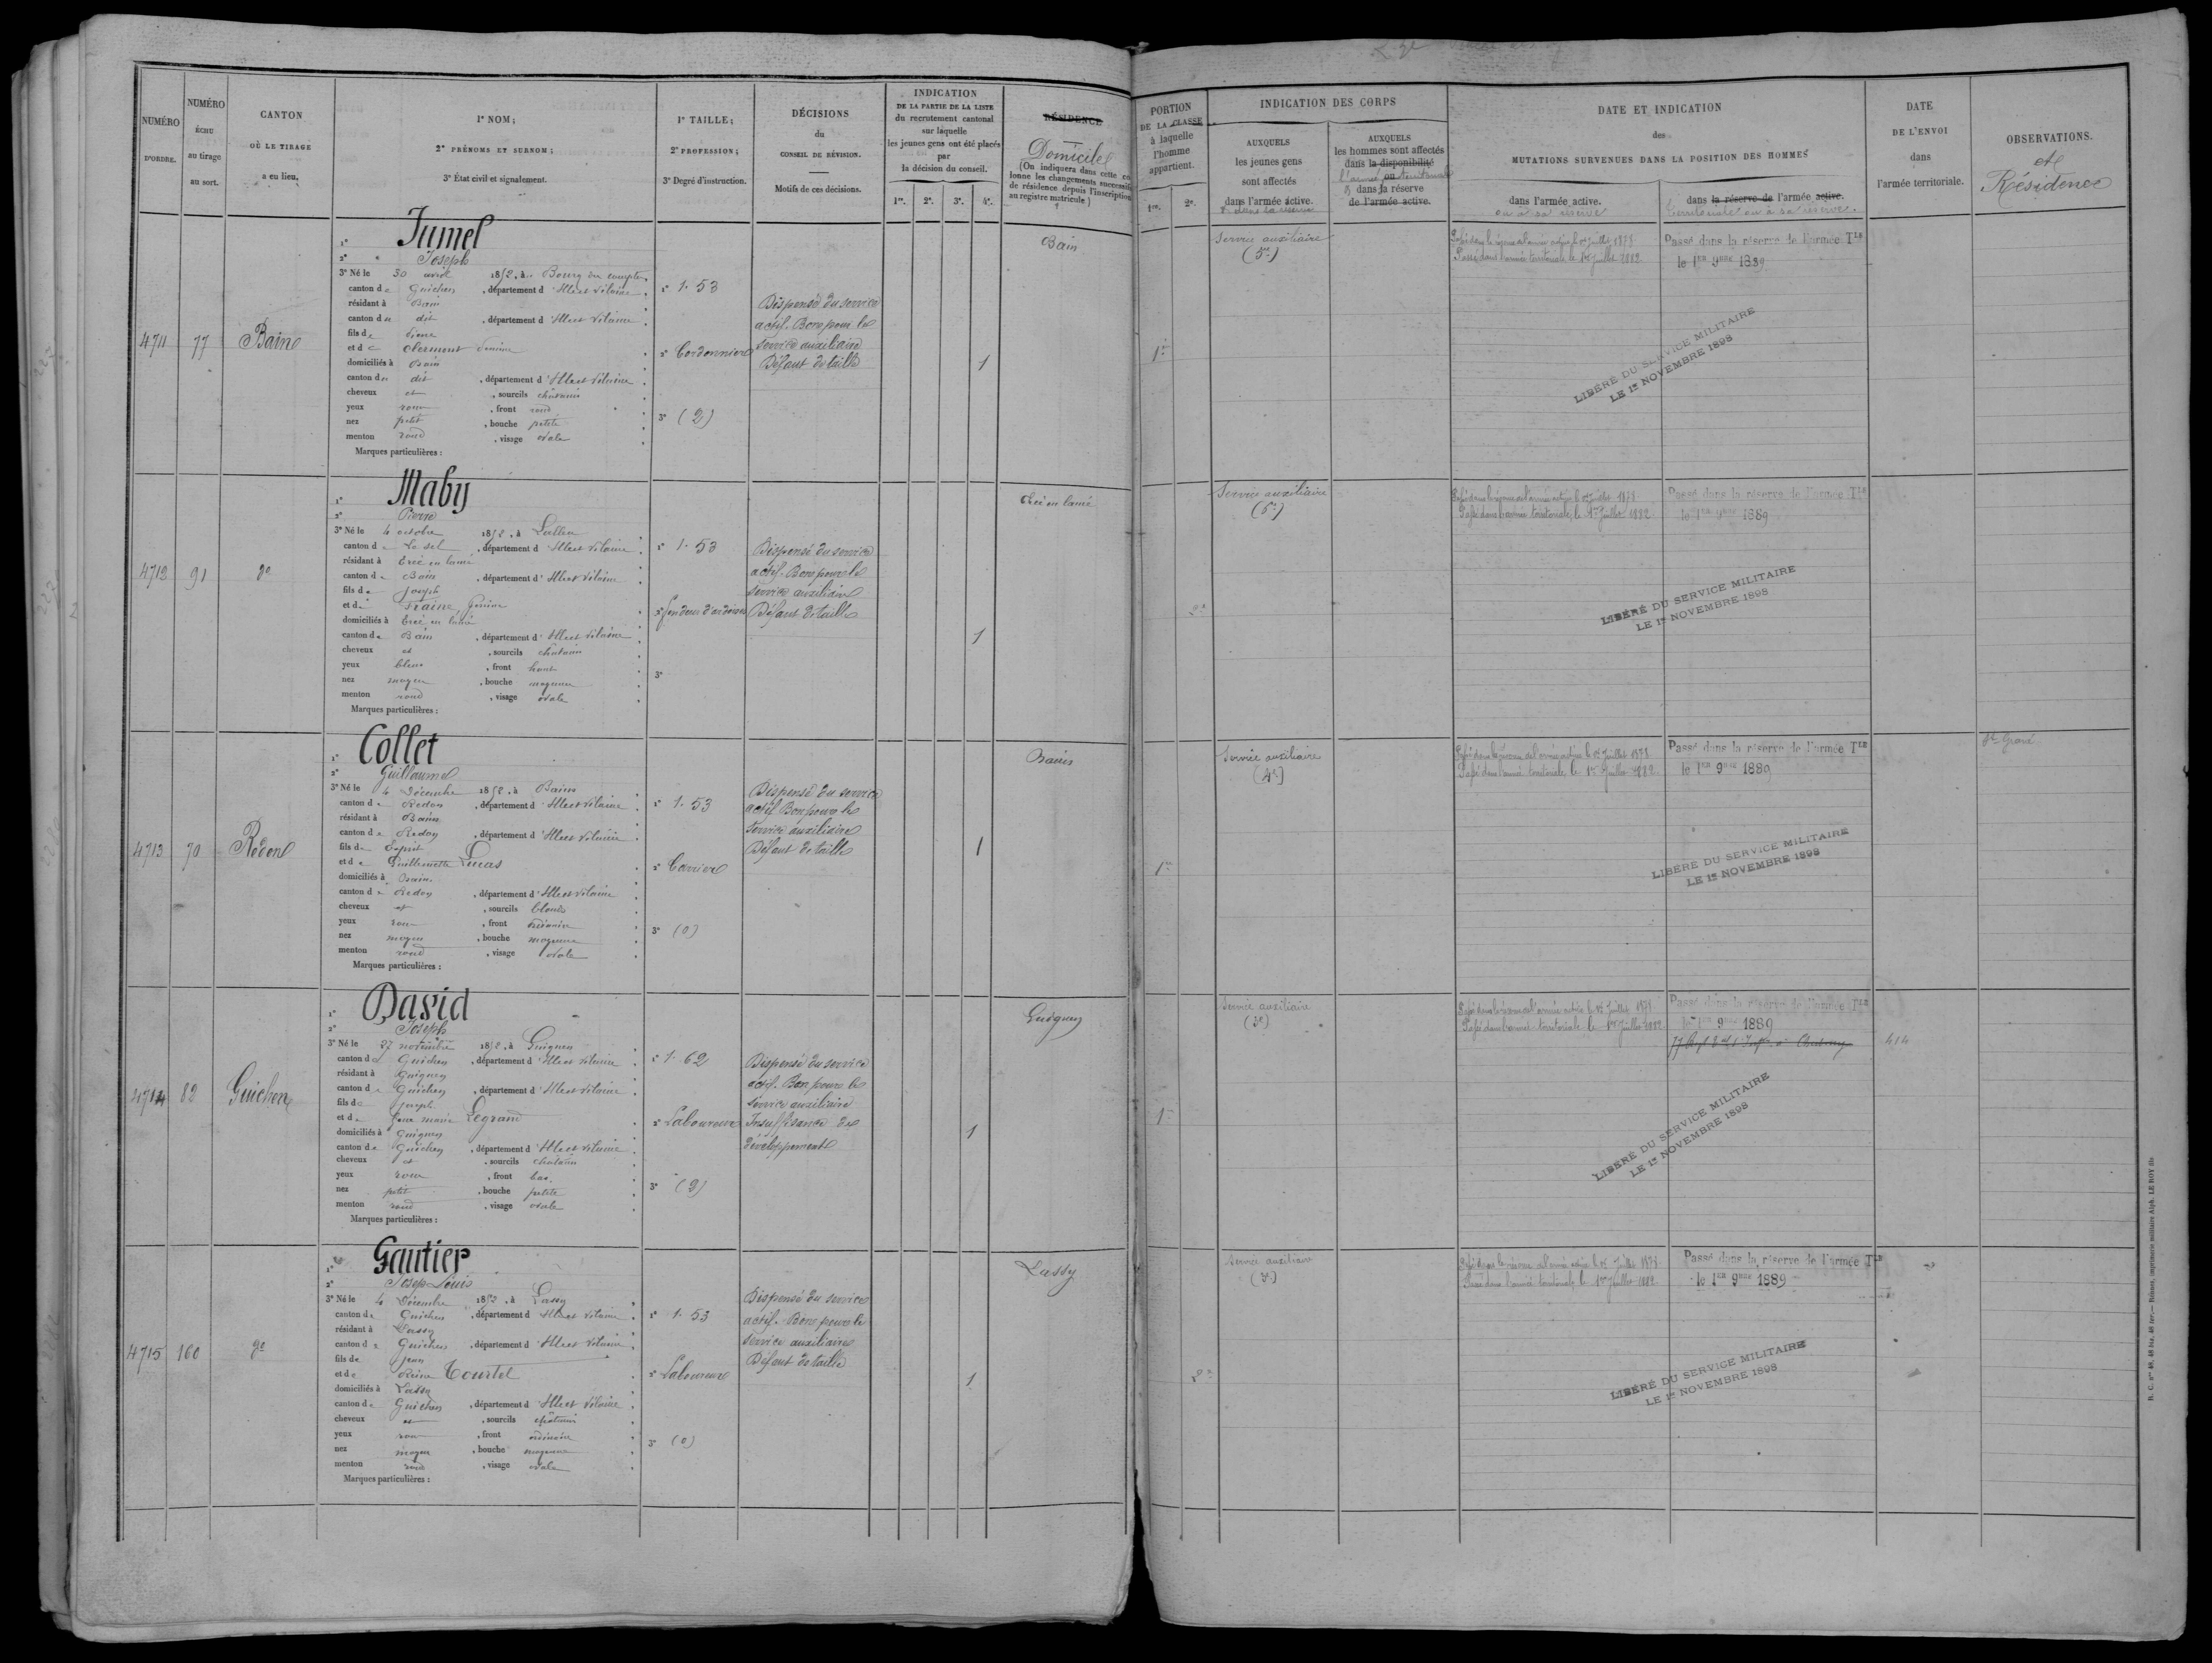 NUMÉRO
D'ORDRE.
NUMÉRO
ÉCHU
au tirage
au sort.
CANTON
OÙ LE TIRAGE
a eu lieu.
1° NOM;
2° PRÉNOMS ET SURNOM;
3° État civil et signalement.
1° TAILLE;
2° PROFESSION;
3° Degré d'instruction.
DÉCISIONS
du
CONSEIL DE RÉVISION.
Motifs de ces décisions.
INDICATION
DE LA PARTIE DE LA LISTE
du recrutement cantonal
sur laquelle
les jeunes gens ont été placés
par
la décision du conseil.
1re. 2e. 3e. 4e.
RÉSIDENCE
Domicile
(On indiquera dans cette co
lonne les changements successifs
de résidence depuis l'inscription
au registre matricule)
PORTION
DE LA CLASSE
à laquelle
l'homme
appartient.
1re. 2e.
INDICATION DES CORPS
AUXQUELS
les jeunes gens
sont affectés
dans l'armée active.
& dans la réserve
AUXQUELS
les hommes sont affectés
dans la disponibilité
ou
l'armée territoriale
dans la réserve
de l'armée active.
DATE ET INDICATION
des
MUTATIONS SURVENUES DANS LA POSITION DES HOMMES
dans l'armée active.
ou à sa réserve
dans la réserve de l'armée active.
territoriale ou à sa réserve.
DATE
DE L'ENVOI
dans
l'armée territoriale.
OBSERVATIONS.
et
Résidence
4711 77 Bain
1° Jumel
2° Joseph
3° Né le 30 avril 1852, à Bourg des comptes
canton de Guichen, département d'Ille et Vilaine
résidant à Bain
canton du dit, département d'Ille et Vilaine
fils de Pierre
et de Clermont
domiciliés à Bain
canton du dit, département d'Ille et Vilaine
cheveux et, sourcils châtains
yeux roux, front rond
nez petit, bouche petite
menton rond, visage ovale
Marques particulières :
1° 1.53
2° Cordonnier
3° (2)
Dispensé du service
actif. Bon pour le
service auxiliaire
Défaut de taille
1
Bain
1re
Service auxiliaire
Passé dans la réserve de l'armée active le 1er Juillet 1878
Passé dans l'armée territoriale, le 1er Juillet 1882
Passé dans la réserve de l'armée Tle
le 1er 9bre 1889
LIBÉRÉ DU SERVICE MILITAIRE
LE 1er NOVEMBRE 1898
4712 91 do
1° Maby
2° Pierre
3° Né le 4 octobre 1852, à Lalleu
canton de Le sel, département d'Ille et Vilaine
résidant à Ercé en lamée
canton de Bain, département d'Ille et Vilaine
fils de Joseph
et de Fraine,
domiciliés à Ercé en lamée
canton de Bain, département d'Ille et Vilaine
cheveux et, sourcils châtain
yeux bleus, front haut
nez moyen, bouche moyenne
menton rond, visage ovale
Marques particulières :
1° 1.53
2° fendeur d'ardoises
3°
Dispensé du service
actif. Bon pour le
service auxiliaire
Défaut de taille
1
Ercé en lamée
2e
Service auxiliaire
(5e)
Passé dans la réserve de l'armée active le 1er Juillet 1878
Passé dans l'armée territoriale, le 1er Juillet 1882
Passé dans la réserve de l'armée Tle
le 1er 9bre 1889
LIBÉRÉ DU SERVICE MILITAIRE
LE 1er NOVEMBRE 1898
4713 70 Redon
1° Collet
2° Guillaume
3° Né le 4 Décembre 1852, à Bains
canton de Redon, département d'Ille et Vilaine
résidant à Bains
canton de Redon, département d'Ille et Vilaine
fils de Esprit
et de Guillemette Lucas
domiciliés à Bains
canton de Redon, département d'Ille et Vilaine
cheveux et, sourcils blonds
yeux roux, front ordinaire
nez moyen, bouche moyenne
menton rond, visage ovale
Marques particulières :
1° 1.53
2° Carrier
3° (0)
Dispensé du service
actif Bon pour le
service auxiliaire
Défaut de taille
1
Bains
1re
Service auxiliaire
(4e)
Passé dans la réserve de l'armée active le 1er Juillet 1878
Passé dans l'armée territoriale, le 1er Juillet 1882
Passé dans la réserve de l'armée Tle
le 1er 9bre 1889
LIBÉRÉ DU SERVICE MILITAIRE
LE 1er NOVEMBRE 1898
St Gravé
4714 82 Guichen
1° David
2° Joseph
3° Né le 27 novembre 1852, à Guignen
canton de Guichen, département d'Ille et Vilaine
résidant à Guignen
canton de Guichen, département d'Ille et Vilaine
fils de Joseph
et de Jeanne marie Legrand
domiciliés à Guignen
canton de Guichen, département d'Ille et Vilaine
cheveux et, sourcils châtains
yeux roux, front bas
nez petit, bouche petite
menton rond, visage ovale
Marques particulières :
1° 1.62
2° Laboureur
3° (2)
Dispensé du service
actif. Bon pour le
service auxiliaire
Insuffisance de
développement
1
Guignen
1re
Service auxiliaire
(3e)
Passé dans la réserve de l'armée active le 1er Juillet 1878
Passé dans l'armée territoriale le 1er Juillet 1882
Passé dans la réserve de l'armée Tle
le 1er 9bre 1889
414
LIBÉRÉ DU SERVICE MILITAIRE
LE 1er NOVEMBRE 1898
4715 160 do
1° Gautier
2° Josep Louis
3° Né le 4 Décembre 1852, à Lassy
canton de Guichen, département d'Ille et Vilaine
résidant à Lassy
canton de Guichen, département d'Ille et Vilaine
fils de Jean
et de Reine Tourtel
domiciliés à Lassy
canton de Guichen, département d'Ille et Vilaine
cheveux et, sourcils châtains
yeux roux, front ordinaire
nez moyen, bouche moyenne
menton rond, visage ovale
Marques particulières :
1° 1.53
2° Laboureur
3° (0)
Dispensé du service
actif. Bon pour le
service auxiliaire
Défaut de taille
1
Lassy
2e
Service auxiliaire
Passé dans la réserve de l'armée active le 1er Juillet 1878
Passé dans l'armée territoriale, le 1er Juillet 1882
Passé dans la réserve de l'armée Tle
le 1er 9bre 1889
LIBÉRÉ DU SERVICE MILITAIRE
LE 1er NOVEMBRE 1898
R. C. nos 48, 48 bis, 48 ter.— Rennes, imprimerie militaire Alph. LE ROY fils